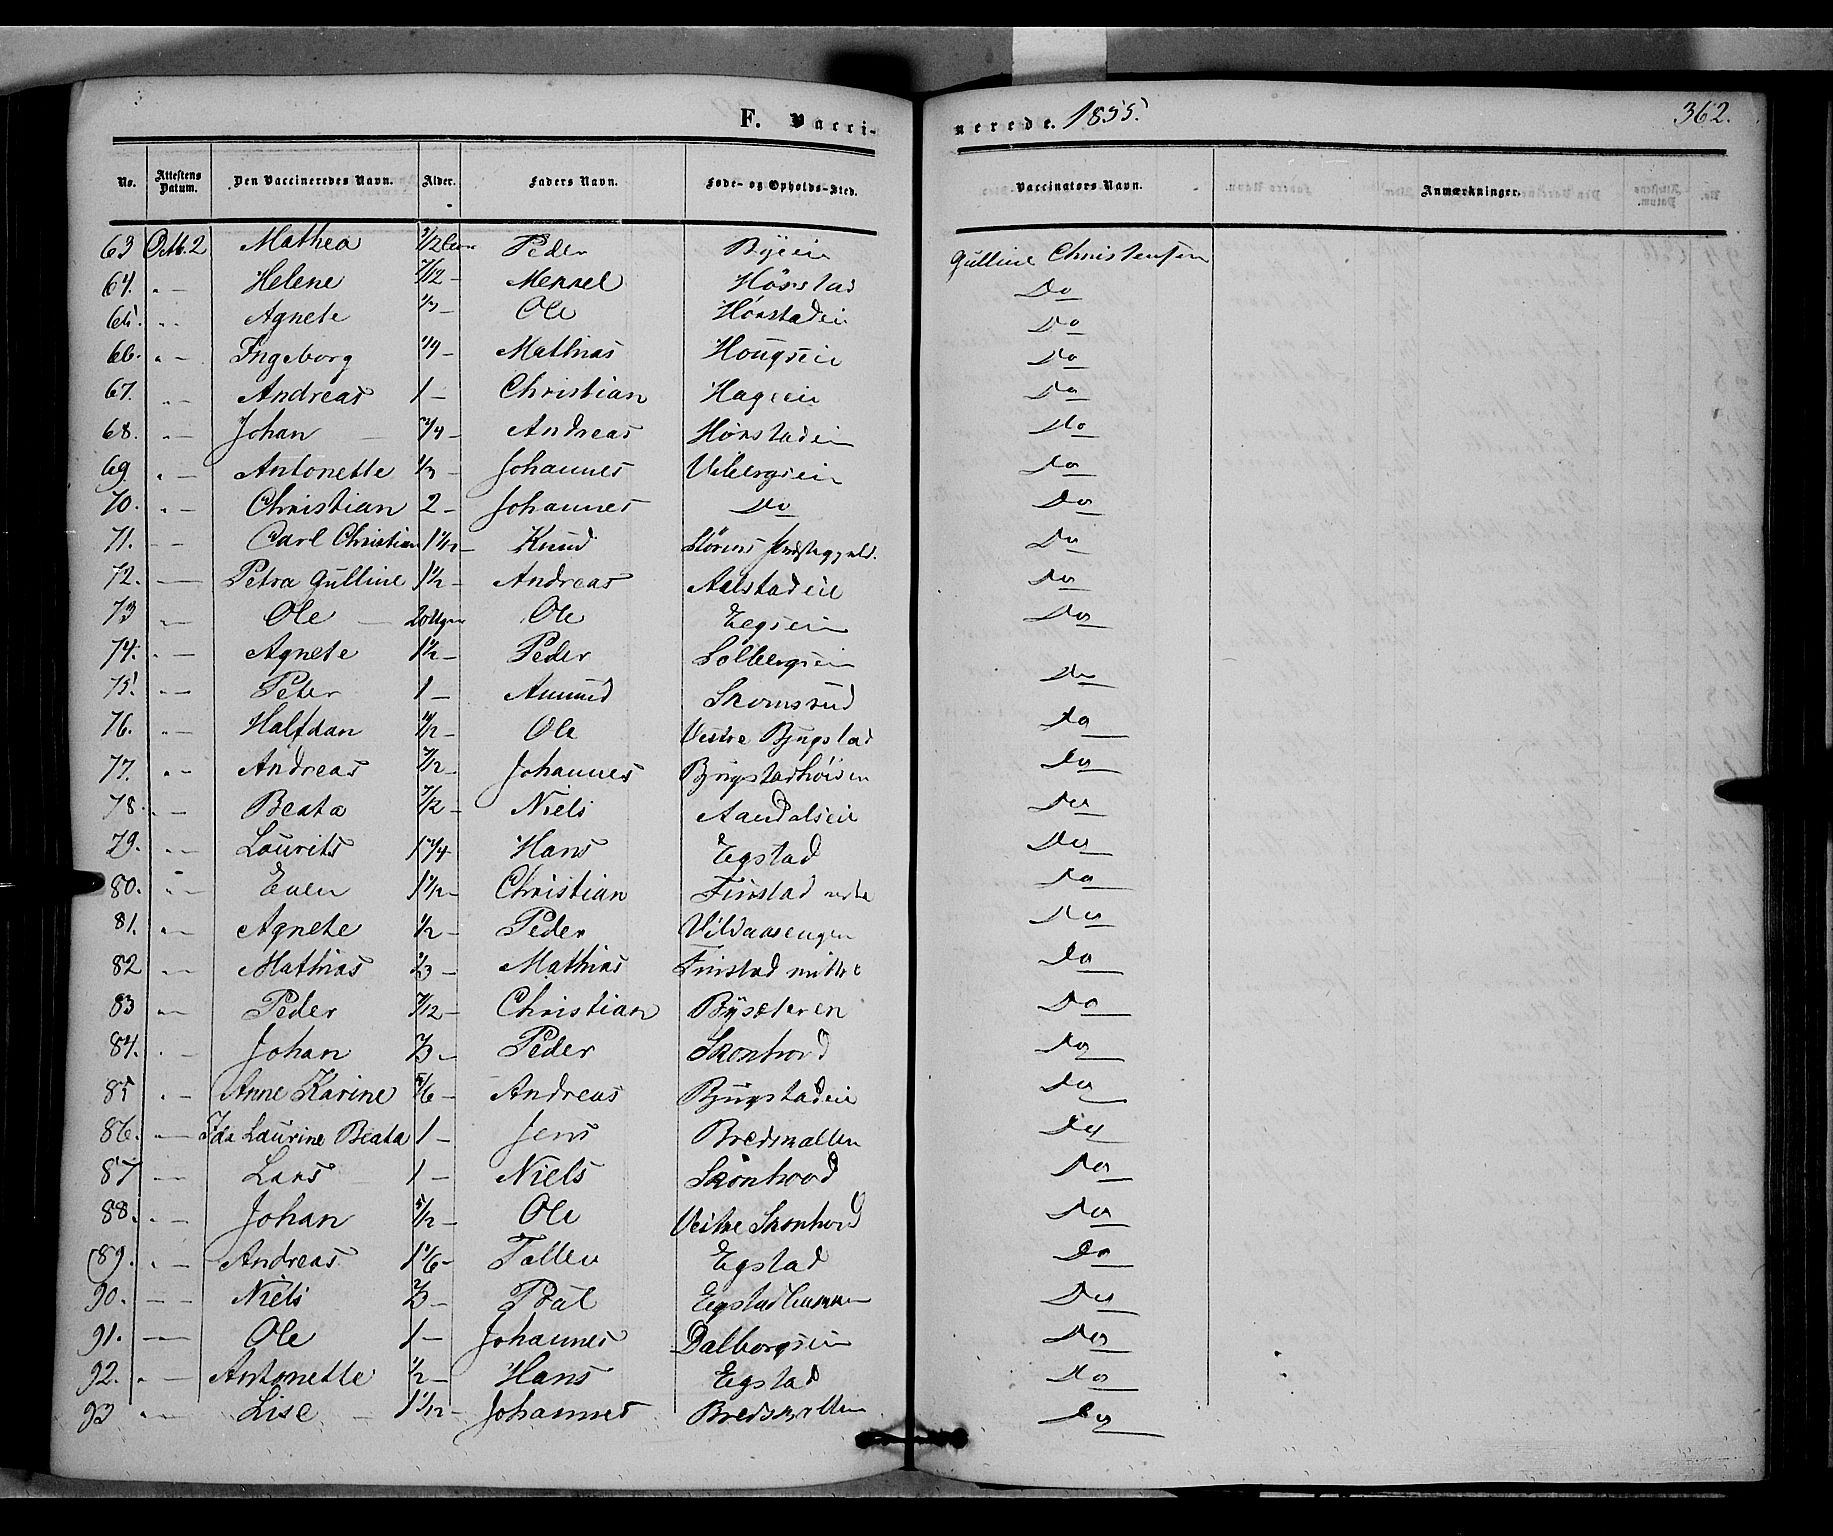 F. Vacci-
nerede. 1855.
362.
No. Attestens Datum. Den Vaccineredes Navn. Alder. Faders Navn. Føde- og Opholds-Sted. Vaccinators Navn. Anmærkninger.
63 Octb. 2 Mathea Peder Byeie Gulline Christensen
64. " — Helene 7/12 — Høistad Do
65. " " Agnete 1/3 — Ole Do
66. " — Ingeborg — Mathias Hougseie Do
67. " — Andreas 1 — Christian Hageeie Do
68. " — Johan 3/4 — Andreas Do
69. " — Antonette 1/3 — Johannes Vibergseie Do
70. " — Christian 2 — Johannes Do Do
71. — Carl Christian — Knud Do
72. — Petra Gulline 1 1/2 — Andreas Aalstadeie Do
73 " — Ole 20 Uger Ole Eegseie Do
74. " — Agnete 1 1/2 — Peder Solbergseie
75. " — Peter 1 — Amund Skomsrud Do
76. " — Halfdan 1/2 — Ole Vestre Bjugstad Do
77. " — Andreas 7/12 — Johannes Do
78. " — Beata 7/12 — Niels Aandalseie Do
79. " — Laurits 1 3/4 Hans Egstad Do
80. " — Even 1 1/2 — Christian Finstad Do
81. " — Agnete 1/2 — Peder Vildaasengen Do
82 " — Mathias 2/3 — Mathias Finstad mittre Do
83 " — Peder 7/12 — Christian Bÿsæteren Do
84. " — Johan 2/3 — Peder Skonhovd Do
85 " — Anne Karine 5/6 — Andreas Bjugstadeie Do
86. " — Ida Laurine Beata 1 — Jens Do
87 — Lars 1 — Niels Skonhovd Do
88. " — Johan 5/12 — Ole Vestre Skonhovd Do
89. " — Andreas 1 1/6 — Egstad Do
90. — Niels 2/3 — Poul Do
91. — Ole 1 — Johannes Dalborgseie Do
92. " — Antonette 1/2 — Hans Egstad Do
93 " — Lise 1 1/12 — Johannes Do